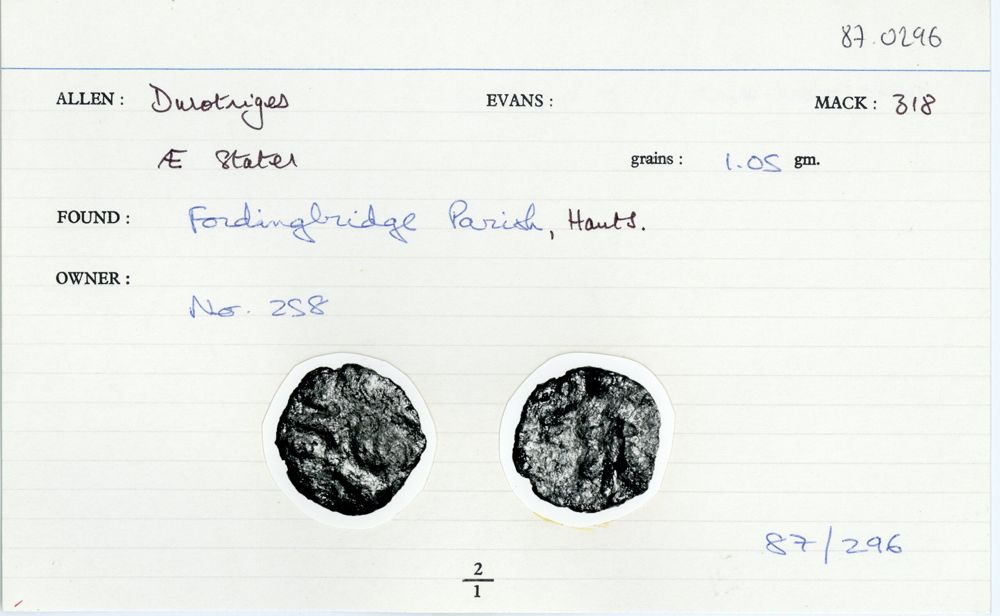 87.0296
ALLEN : Durotriges EVANS : MACK : 318
Æ Stater grains : 1.05 gm.
FOUND : Fordingbridge Parish, Hants.
OWNER :
No. 258
87/296
2
1